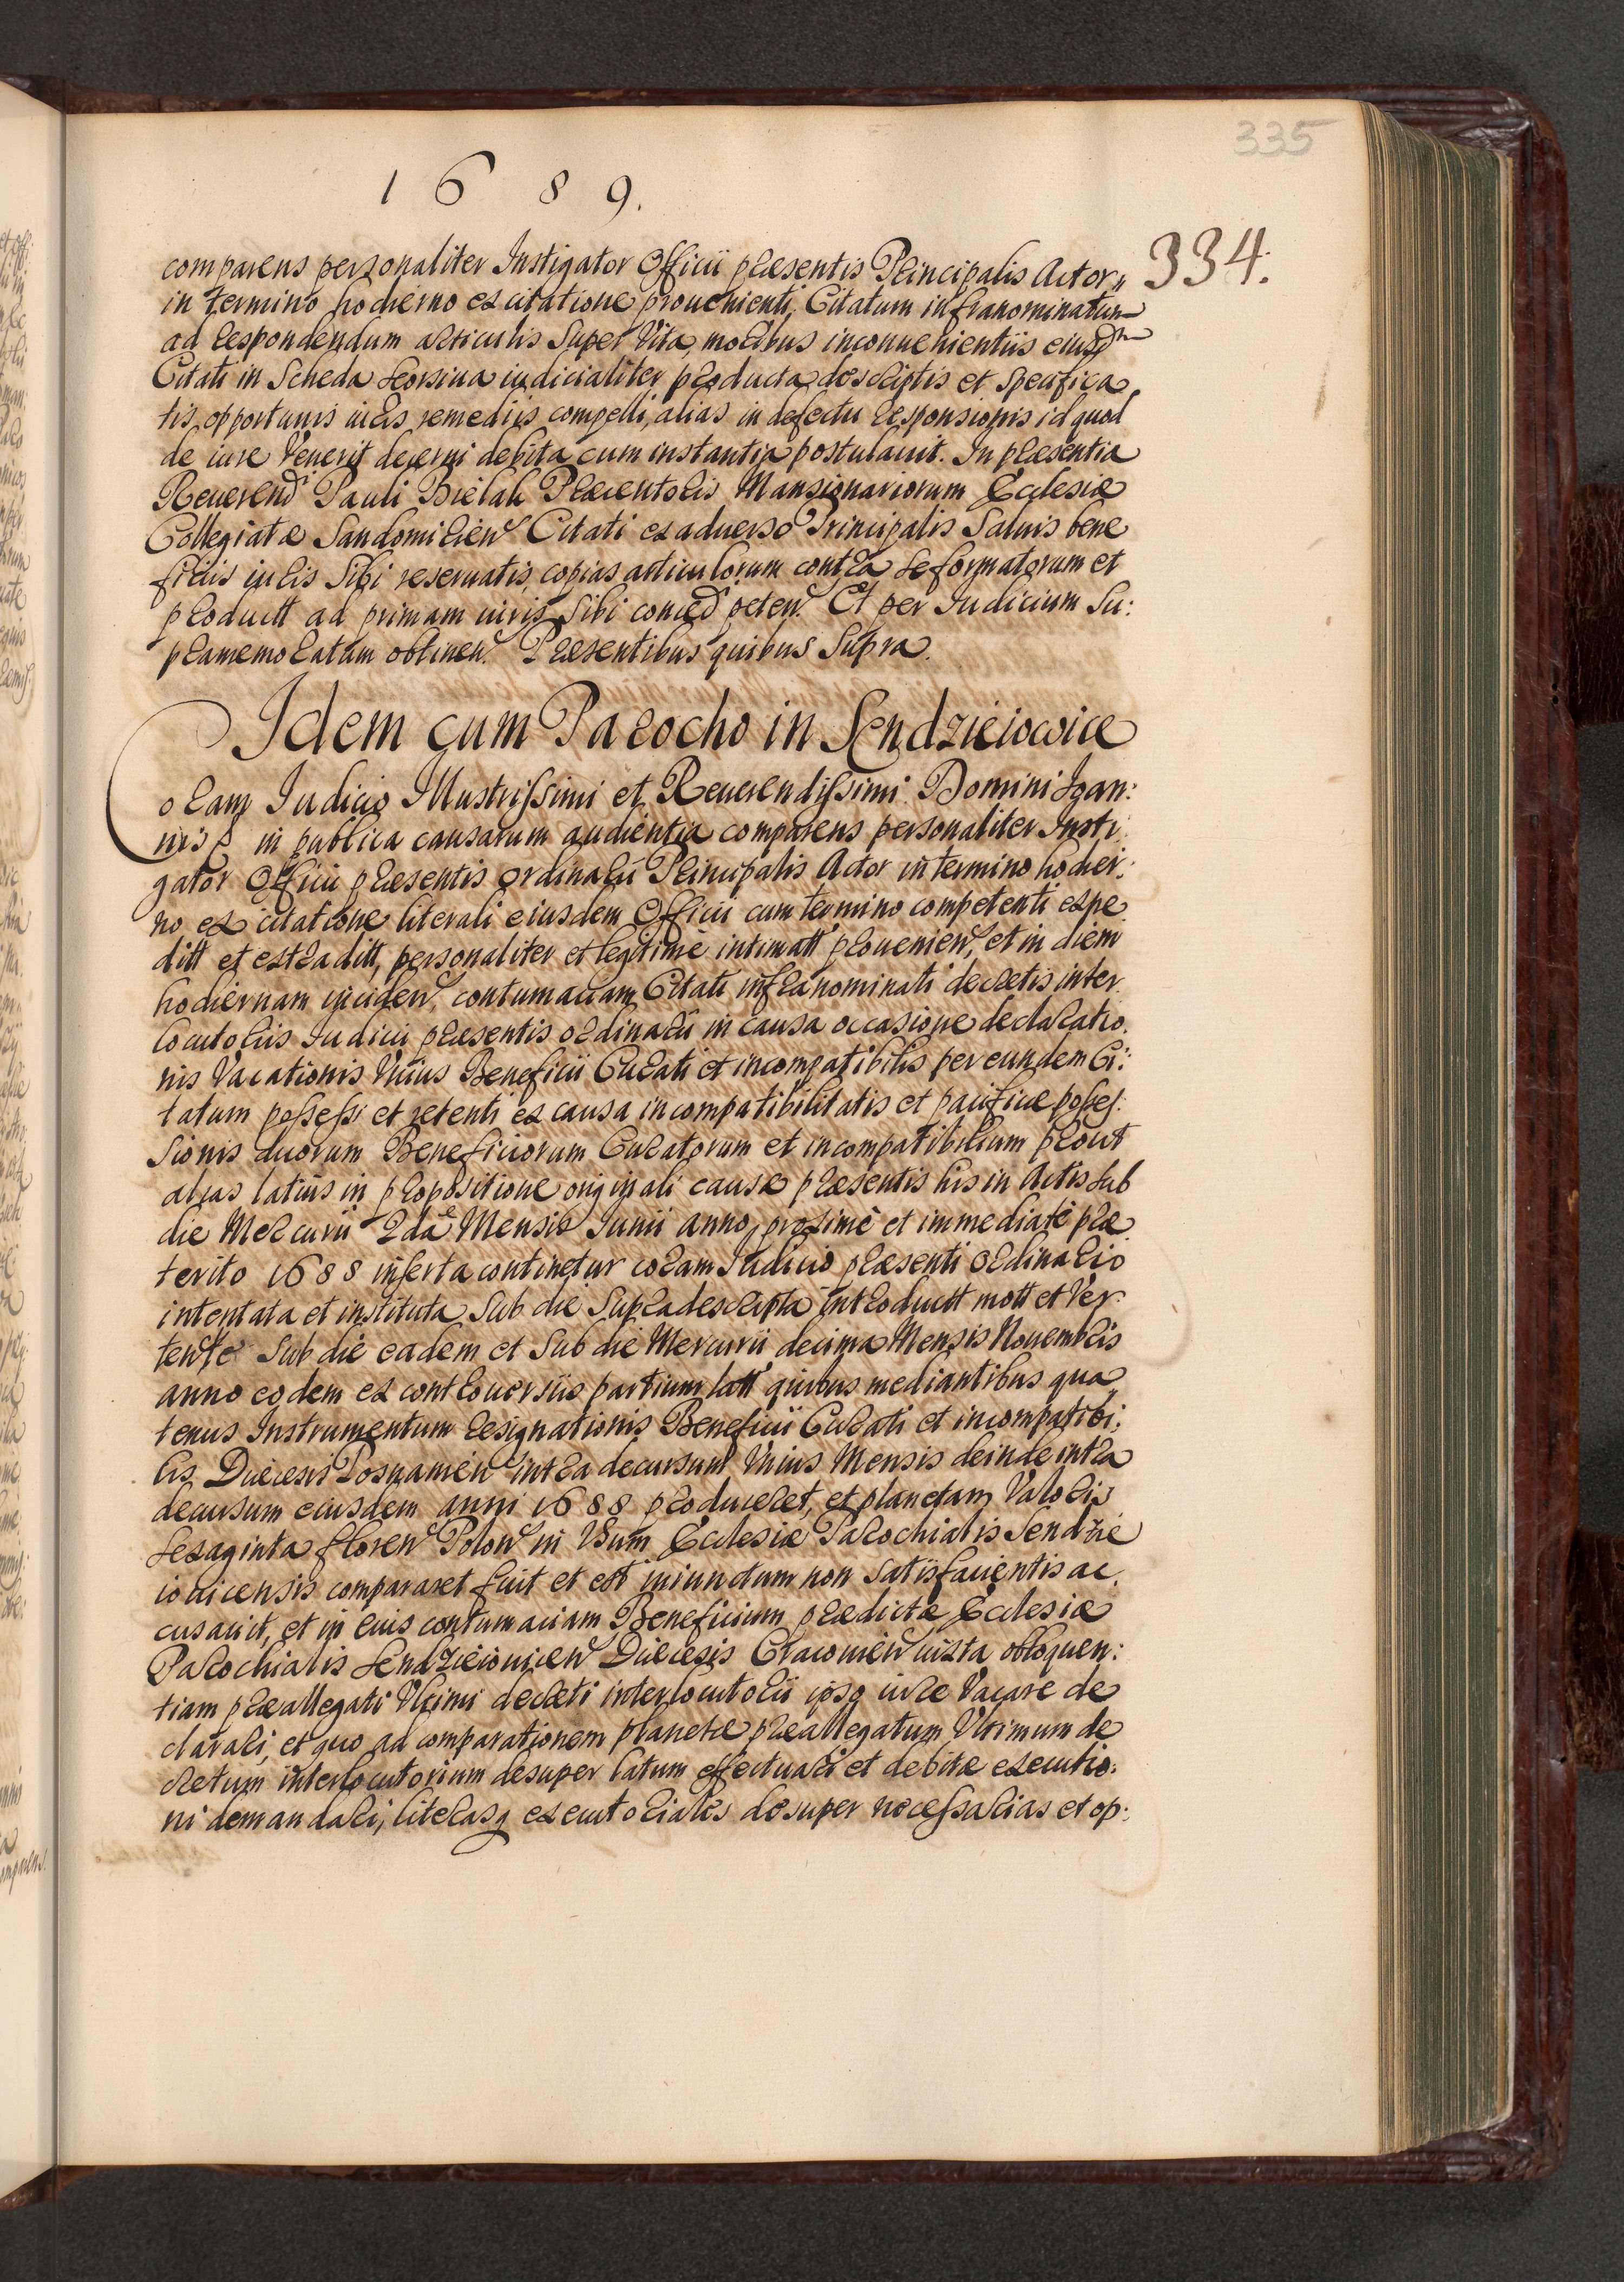 335
1689.
334.
comparens personaliter Instigator Officii præsentis Principalis Actor
in termino hodierno ex citatione prouenienti, Citatum infranominatum
ad respondendum articulis super Vita, moribus inconuenientiis eiusdm
Citati in Scheda seorsiua iudicialiter producta descriptis et specifica
tis, opportunis iuris remediis compelli, alias in defectu responsionis id quod
de iure Venerit decerni debita cum instantia postulauit. In præsentia
Reuerend Pauli Bielak Præcentoris Mansionariorum Ecclesiæ
Collegiatæ Sandomirien Citati ex aduerso Principalis Saluis bene
ficiis iuris Sibi reseruatis, copias articulorum contra se formatorum et
productt ad primam iuris Sibi conced peten. Et per Iudicium Su:
pramemoratum obtinen. Præsentibus quibus Supra.
Idem cum Parocho in Sendzieiowice
Coram Iudicio Illustrissimi et Reuerendissimi Domini Ioan:
nis in publica causarum audientia comparens personaliter Insti
gator Officii præsentis ordinarii Principalis Actor in termino hodier:
no ex citatione literali eiusdem Officii cum termino competenti expe
ditt et extraditt, personaliter et legitime intimatt prouenien, et in diem
hodiernam inciden, contumaciam Citati infranominati decretis inter
locutoriis Iudicii præsentis ordinarii in causa occasione declaratio
nis Vacationis Vnius Beneficii Curati et incompatibilis per eundem Ci:
tatum possessi et retenti ex causa incompatibilitatis et pacificæ posses:
sionis duorum Beneficiorum Curatorum et incompatibilium prout
alias latius in propositione originali causæ præsentis his in Actis sub
die Mercurii 2da Mensis Iunii anno proxime et immediate præ
terito 1688 inserta continetur coram Iudicio præsenti Ordinario
intentata et instituta Sub die Supradescripta introductt mott et Ver
tente Sub die eadem et Sub die Mercurii decima Mensis Nouembris
anno eodem ex controuersiis partium latt quibus mediantibus qua
tenus Instrumentum resignationis Beneficii Curati et incompatibi:
lis Diœcesis Posnanien intra decursum Vnius Mensis deinde intra
decursum eiusdem anni 1688 produceret, et planetam Valoris
sexaginta floren Polon in Vsum Ecclesiæ Parochialis Sendzie
iouicensis compararet fuit et est iniunctum non satisfacientis ac
cusauit, et in eius contumaciam Beneficium prædictæ Ecclesiæ
Parochialis Sendzieiouicen Diœcesis Cracouien iuxta obloquen:
tiam præallegati Vltimi decreti interlocutorii ipso iure Vacare de
clarari, et quo ad comparationem planetæ præallegatum Vltimum de
cretum interlocutorium desuper latum effectuari et debitæ executio:
ni demandari, literasq executoriales desuper necessarias et op: